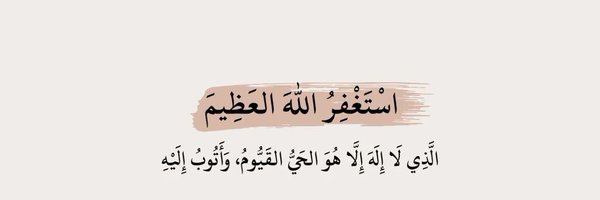 اسْتَغْفِرُ اللهَ العَظِيمَ
الَّذِي لَا إِلَهَ إِلَّا هُوَ الحَيُّ القَيُّومُ، وَأَتُوبُ إِلَيْهِ